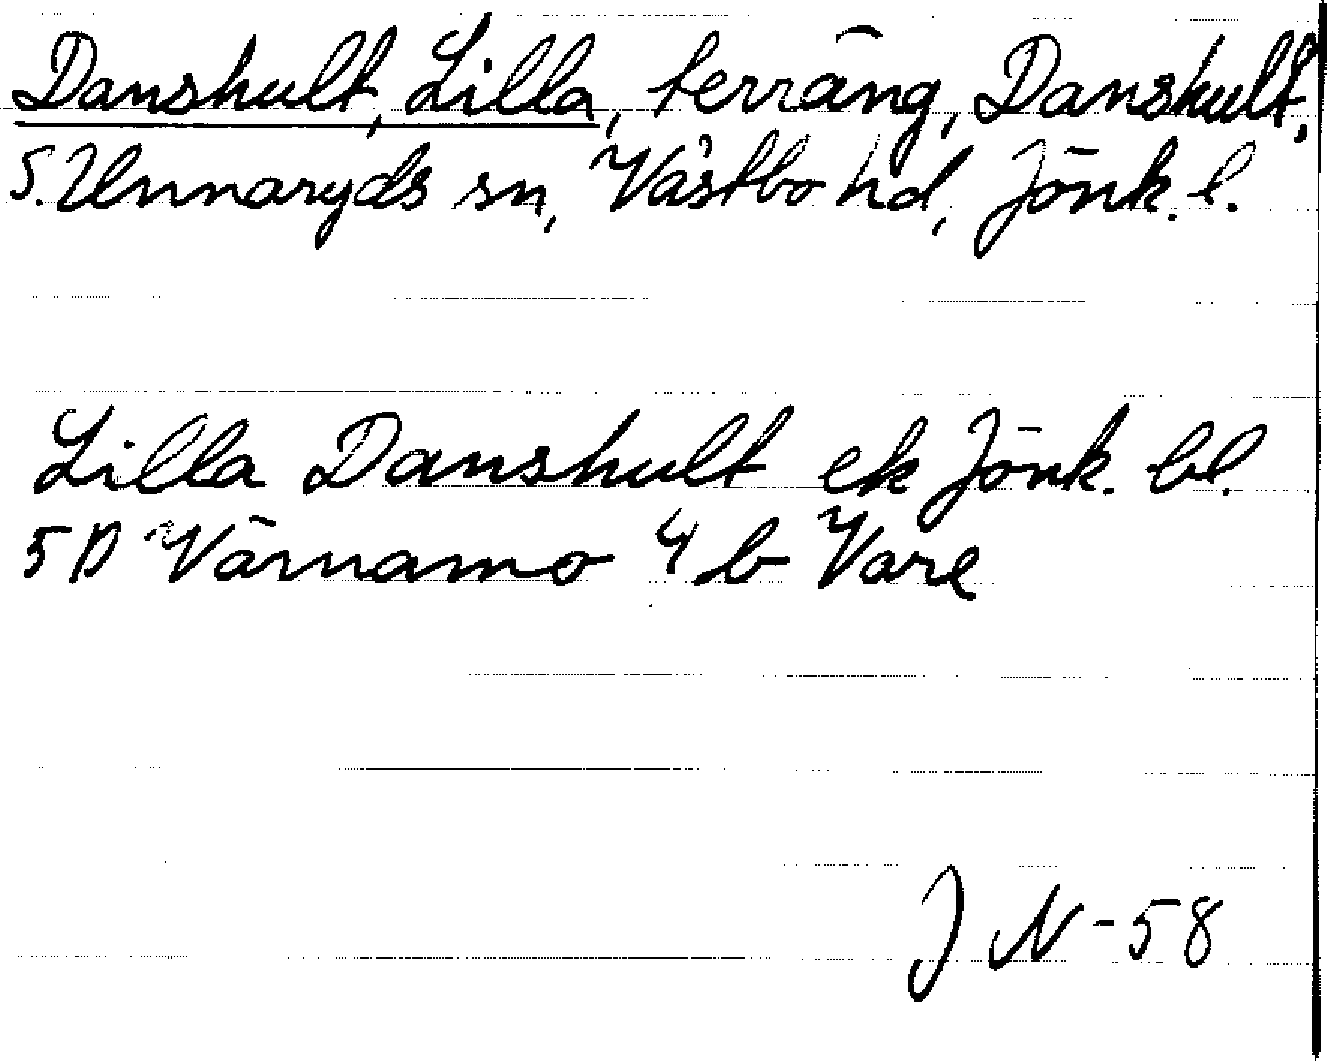 Danshult, Lilla, terräng, Danshult,
S. Unnaryds sn, Västbo hd, Jönk. l.
Lilla Danshult ek Jönk. bl.
5 D Värnamo 4 b Vare
J N - 58